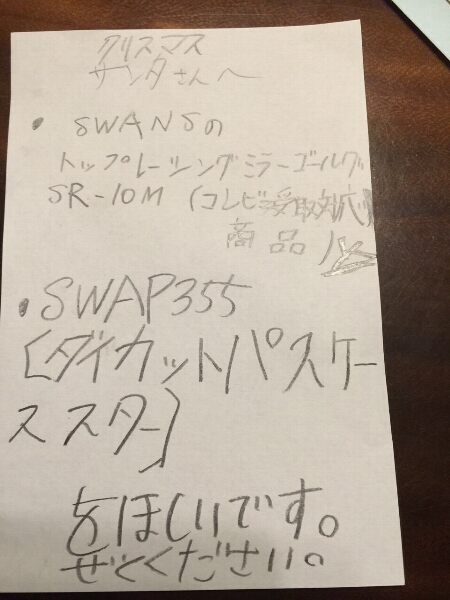 クリスマス
サンタさんへ
• SWANSの
トップレーシングミラーゴールグ
SR-10M (コレビ受取対応)
商品
• SWAP355
[ダイカットパスケー
ススター]
をほしいです。
ぜとください。